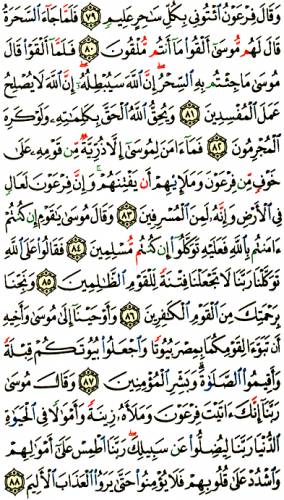 وَقَالَ فِرْعَوْنُ ٱئْتُونِى بِكُلِّ سَٰحِرٍ عَلِيمٍ ٧٩ فَلَمَّا جَآءَ ٱلسَّحَرَةُ
قَالَ لَهُم مُّوسَىٰٓ أَلْقُوا۟ مَآ أَنتُم مُّلْقُونَ ٨٠ فَلَمَّآ أَلْقَوْا۟ قَالَ
مُوسَىٰ مَا جِئْتُم بِهِ ٱلسِّحْرُ ۖ إِنَّ ٱللَّهَ سَيُبْطِلُهُۥٓ ۖ إِنَّ ٱللَّهَ لَا يُصْلِحُ
عَمَلَ ٱلْمُفْسِدِينَ ٨١ وَيُحِقُّ ٱللَّهُ ٱلْحَقَّ بِكَلِمَٰتِهِۦ وَلَوْ كَرِهَ
ٱلْمُجْرِمُونَ ٨٢ فَمَآ ءَامَنَ لِمُوسَىٰٓ إِلَّا ذُرِّيَّةٌ مِّن قَوْمِهِۦ عَلَىٰ
خَوْفٍ مِّن فِرْعَوْنَ وَمَلَإِي۟هِمْ أَن يَفْتِنَهُمْ ۚ وَإِنَّ فِرْعَوْنَ لَعَالٍ
فِى ٱلْأَرْضِ وَإِنَّهُۥ لَمِنَ ٱلْمُسْرِفِينَ ٨٣ وَقَالَ مُوسَىٰ يَٰقَوْمِ إِن كُنتُمْ
ءَامَنتُم بِٱللَّهِ فَعَلَيْهِ تَوَكَّلُوٓا۟ إِن كُنتُم مُّسْلِمِينَ ٨٤ فَقَالُوا۟ عَلَى ٱللَّهِ
تَوَكَّلْنَا رَبَّنَا لَا تَجْعَلْنَا فِتْنَةً لِّلْقَوْمِ ٱلظَّٰلِمِينَ ٨٥ وَنَجِّنَا
بِرَحْمَتِكَ مِنَ ٱلْقَوْمِ ٱلْكَٰفِرِينَ ٨٦ وَأَوْحَيْنَآ إِلَىٰ مُوسَىٰ وَأَخِيهِ
أَن تَبَوَّءَا لِقَوْمِكُمَا بِمِصْرَ بُيُوتًا وَٱجْعَلُوا۟ بُيُوتَكُمْ قِبْلَةً
وَأَقِيمُوا۟ ٱلصَّلَوٰةَ ۗ وَبَشِّرِ ٱلْمُؤْمِنِينَ ٨٧ وَقَالَ مُوسَىٰ
رَبَّنَآ إِنَّكَ ءَاتَيْتَ فِرْعَوْنَ وَمَلَأَهُۥ زِينَةً وَأَمْوَٰلًا فِى ٱلْحَيَوٰةِ
ٱلدُّنْيَا رَبَّنَا لِيُضِلُّوا۟ عَن سَبِيلِكَ ۖ رَبَّنَا ٱطْمِسْ عَلَىٰٓ أَمْوَٰلِهِمْ
وَٱشْدُدْ عَلَىٰ قُلُوبِهِمْ فَلَا يُؤْمِنُوا۟ حَتَّىٰ يَرَوُا۟ ٱلْعَذَابَ ٱلْأَلِيمَ ٨٨